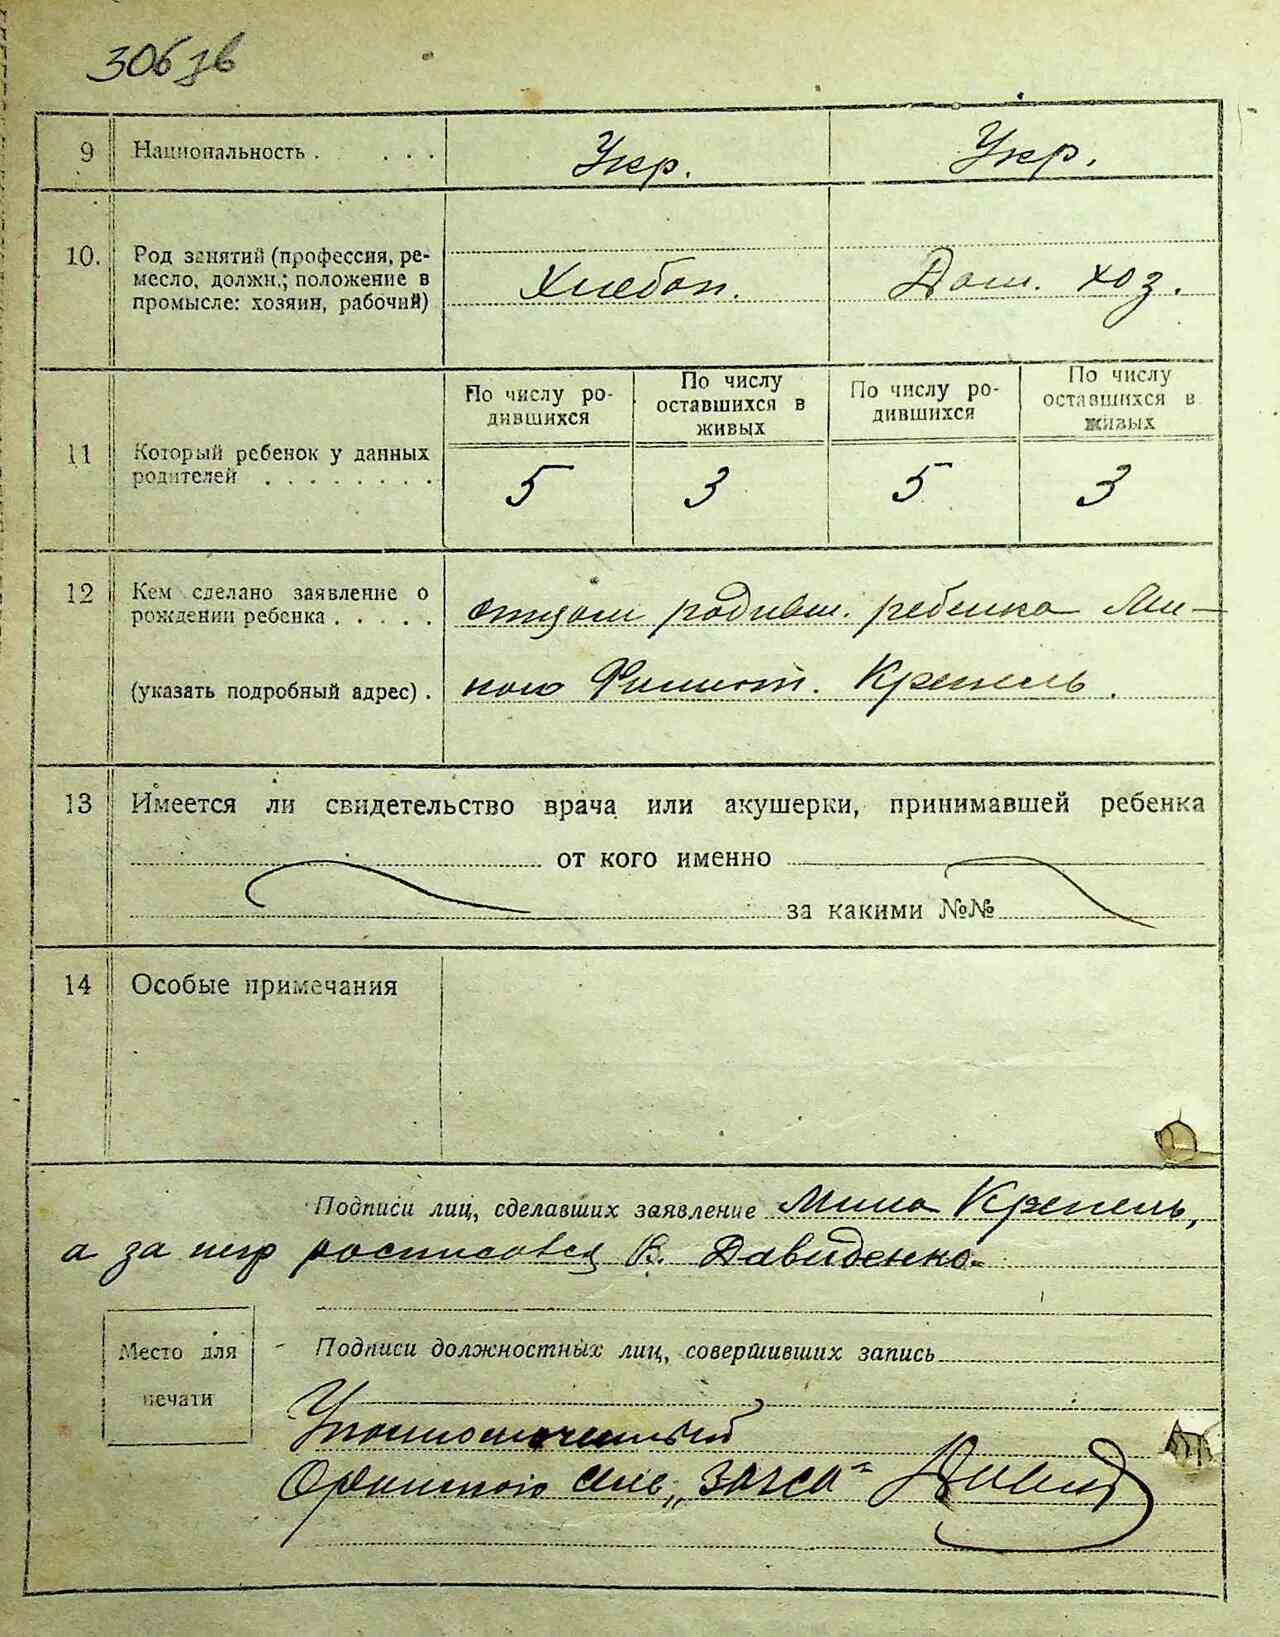 306 зв
9 Национальность . . . . Укр. Укр.
10. Род занятий (профессия, ре-
месло, должн.; положение в
промысле: хозяин, рабочий)
Хлебоп. Дом. хоз.
11 Который ребенок у данных
родителей . . . . . . . .
По числу ро-
дившихся
По числу
оставшихся в
живых
По числу ро-
дившихся
По числу
оставшихся в
живых
5 3 5 3
12 Кем сделано заявление о
рождении ребенка . . . . .
(указать подробный адрес) .
отцом родивш. ребенка Ми-
ною Филип. Крепель.
13 Имеется ли свидетельство врача или акушерки, принимавшей ребенка
от кого именно
за какими №№
14 Особые примечания
Подписи лиц, сделавших заявление Мина Крепель,
а за негр росписовся В. Давиденко.
Место для
печати
Подписи должностных лиц, совершивших запись
Уполномоченный
"загса"